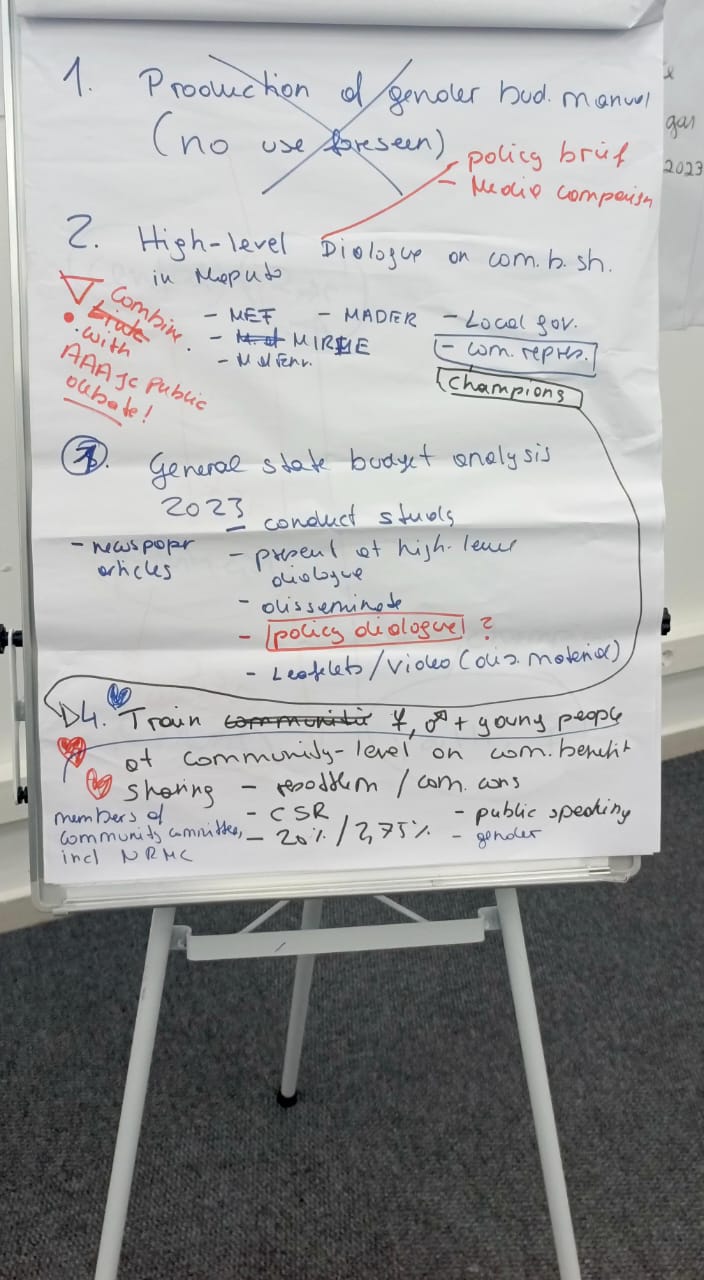 1. Production of gender bud. manual
(no use foreseen)
policy brief
- Media comparison
2. High-level Dialogue on com. b. sh.
in Maputo
Combine
with
AAAJC public
debate!
- MEF
- MIREME
- MADER
- Local gov.
- com. repres.
champions
3. General state budget analysis
2023
- newspaper
articles
- conduct study
- present at high-level
dialogue
- disseminate
- policy dialogue ?
- Leaflets / Video (diss. material)
4. Train ♀, ♂ + young people
at community-level on com. benefit
sharing
- resettlem / com. cons
- CSR
- 20% / 2,75%
- public speaking
- gender
members of
community committee,
incl NRMC